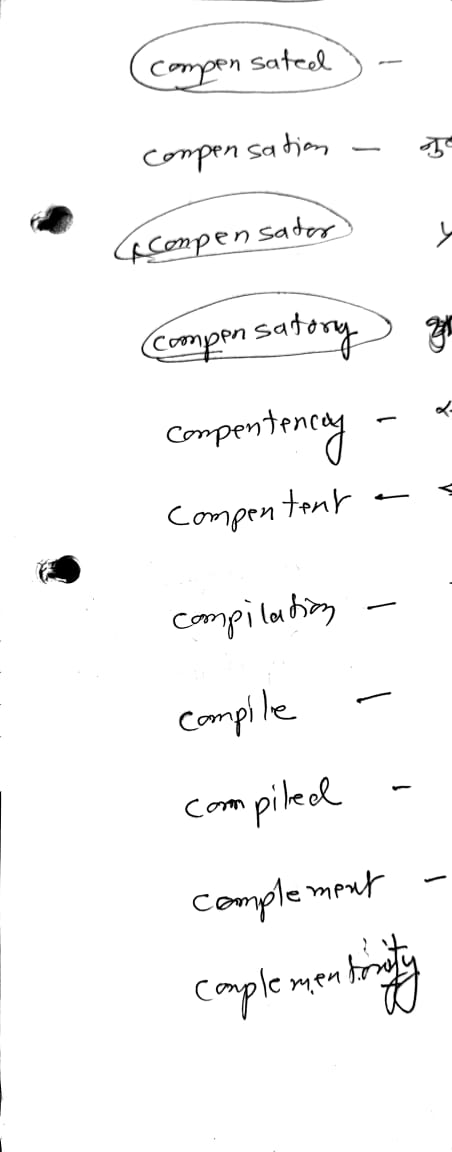 compensated -
compensation - मु
compensator
compensatory
compentency -
compentent -
compilation -
compile -
compiled -
complement -